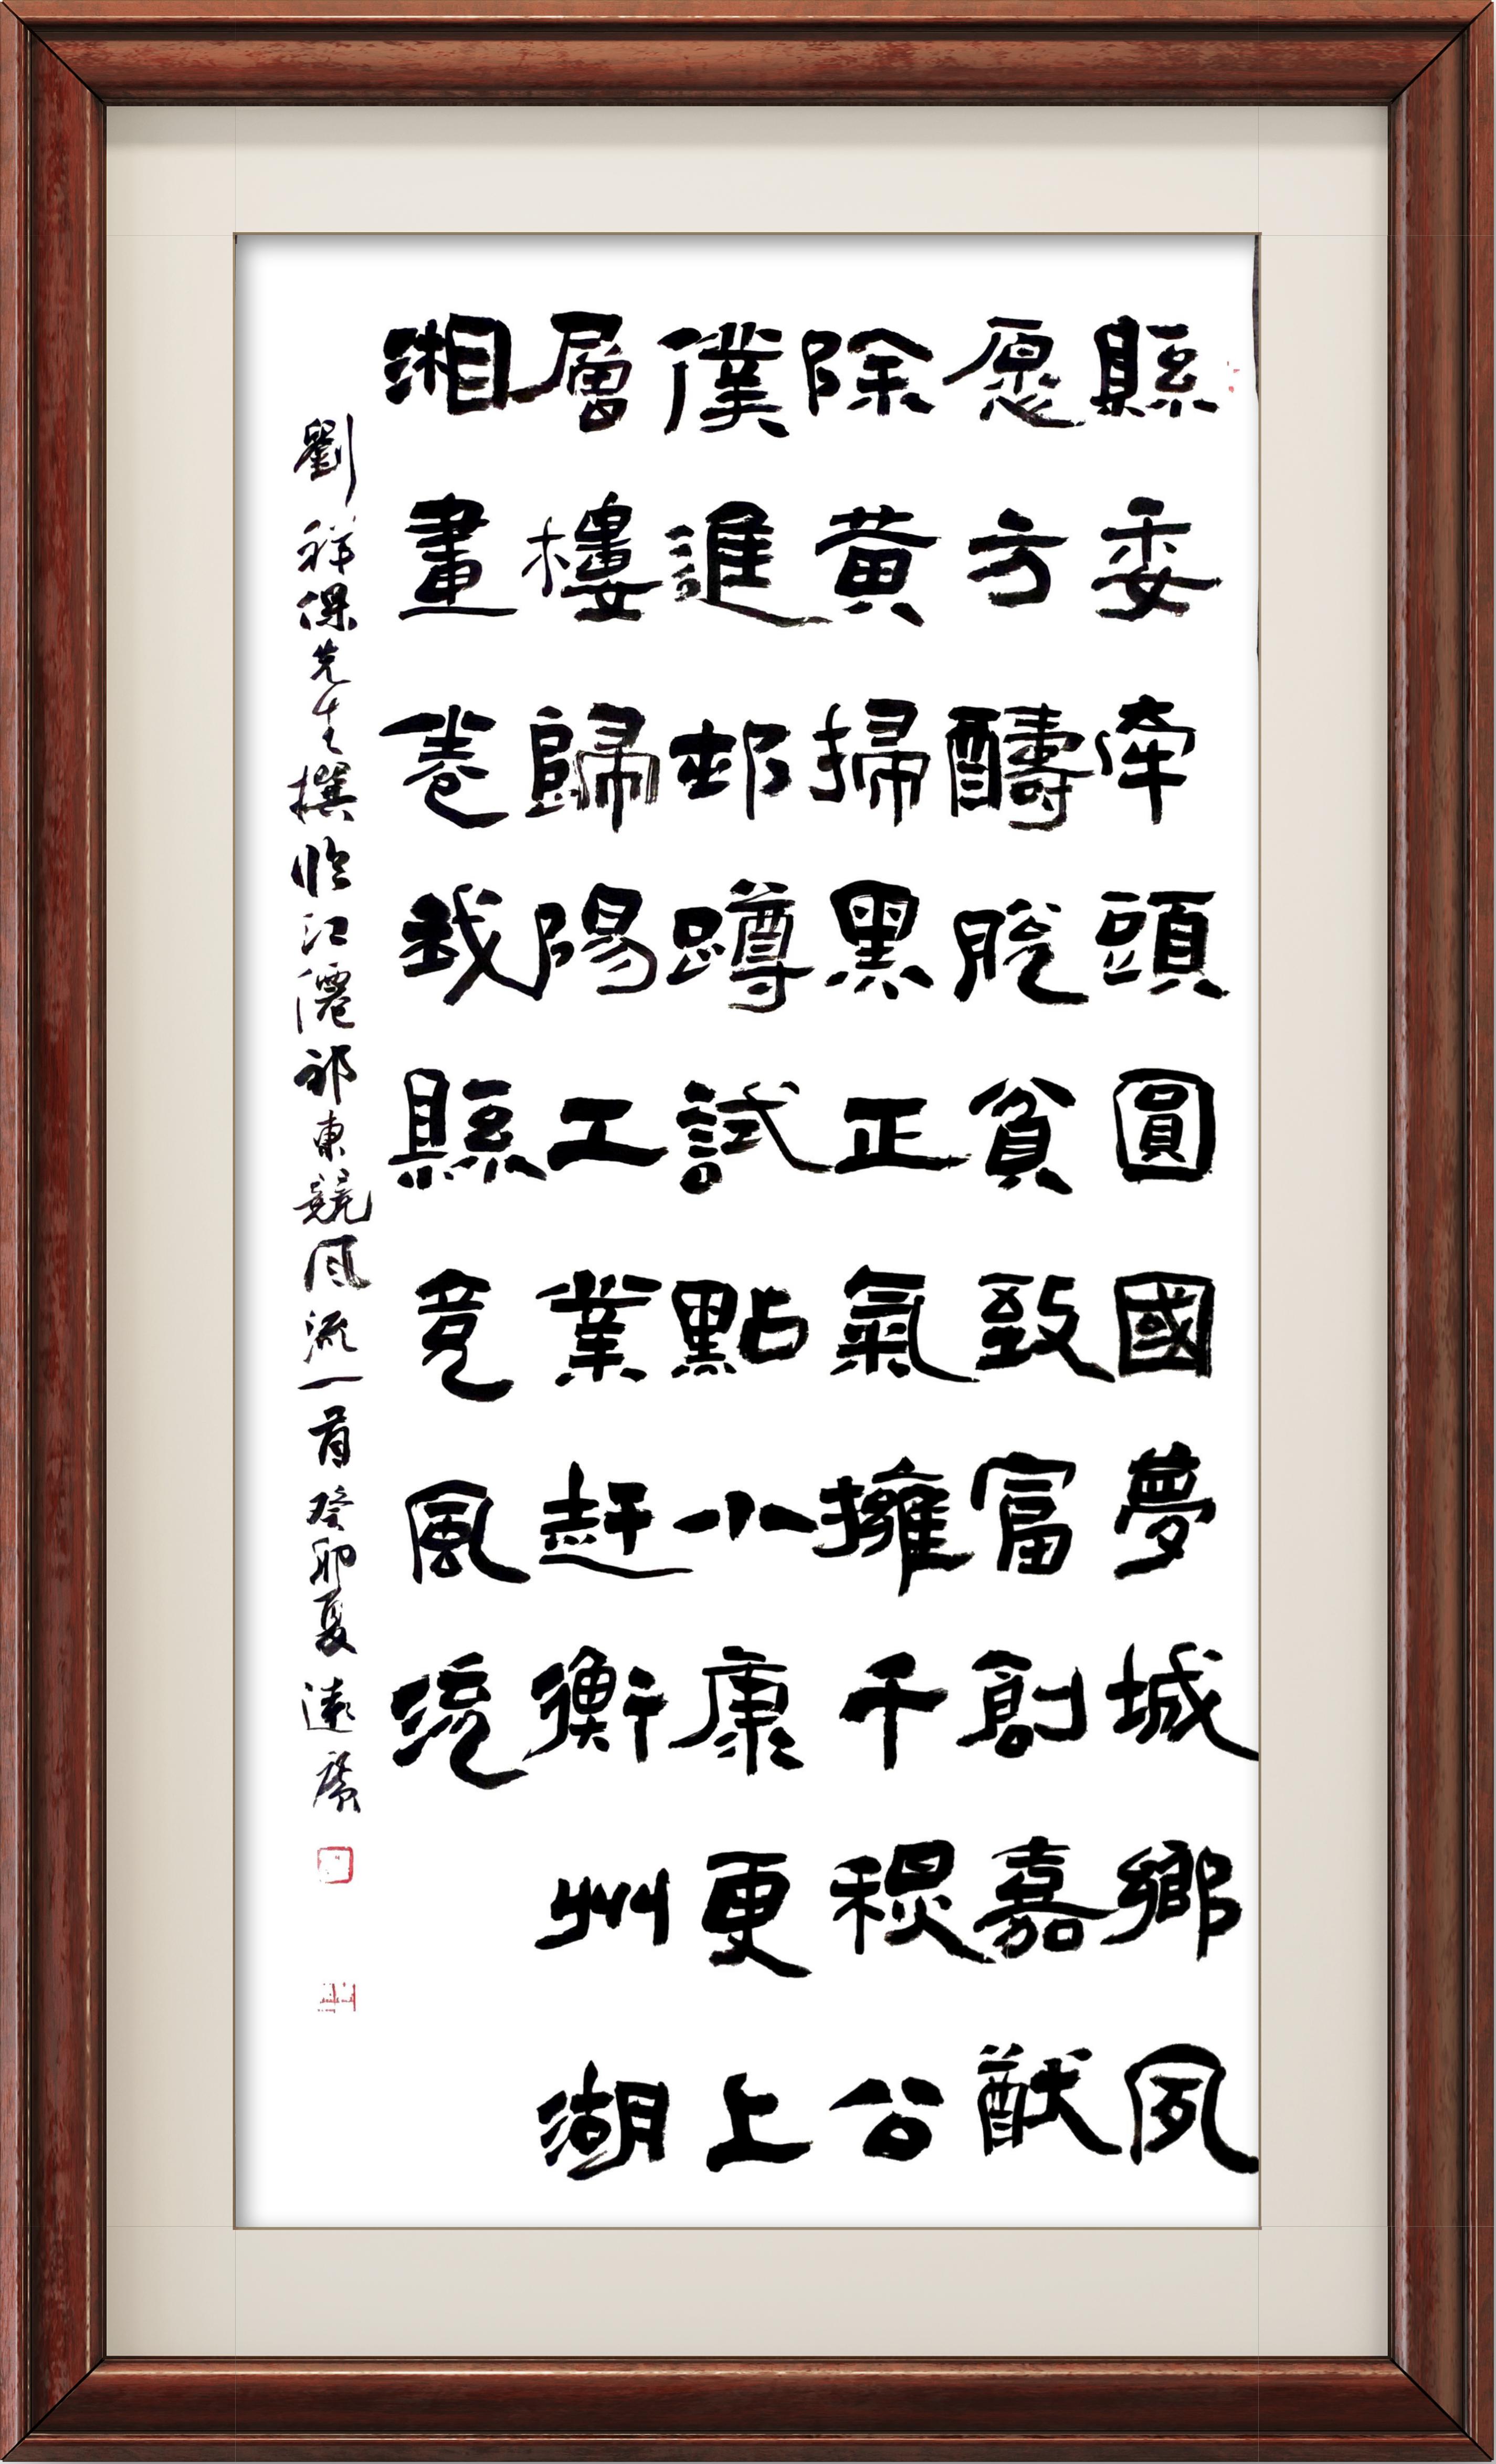 縣委牽頭圓國夢城鄉夙
愿方酬脫貧致富創嘉猷
除黃掃黑正氣擁千秾公
僕進邨蹲試點小康更上
層樓歸陽工業趕衡州湖
湘畫卷我縣竞風流
劉祥保先生撰临江僊祁東競風流一首癸卯夏遠廣